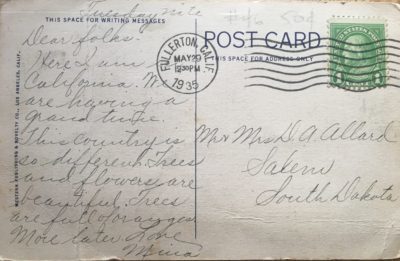 Tuesday nite
THIS SPACE FOR WRITING MESSAGES
Dear folks.
Here I am in
California. We
are having a
grand time.
This Country is
so different. Trees
and flowers are
beautiful. Trees
are full of oranges
More later Love
Mina
WESTERN PUBLISHING & NOVELTY CO., LOS ANGELES, CALIF.
#46 504
POST CARD
THIS SPACE FOR ADDRESS ONLY
FULLERTON, CALIF.
MAY 29
12:30 PM
1935
Mr & Mrs D. A. Allard
Salem
South Dakota